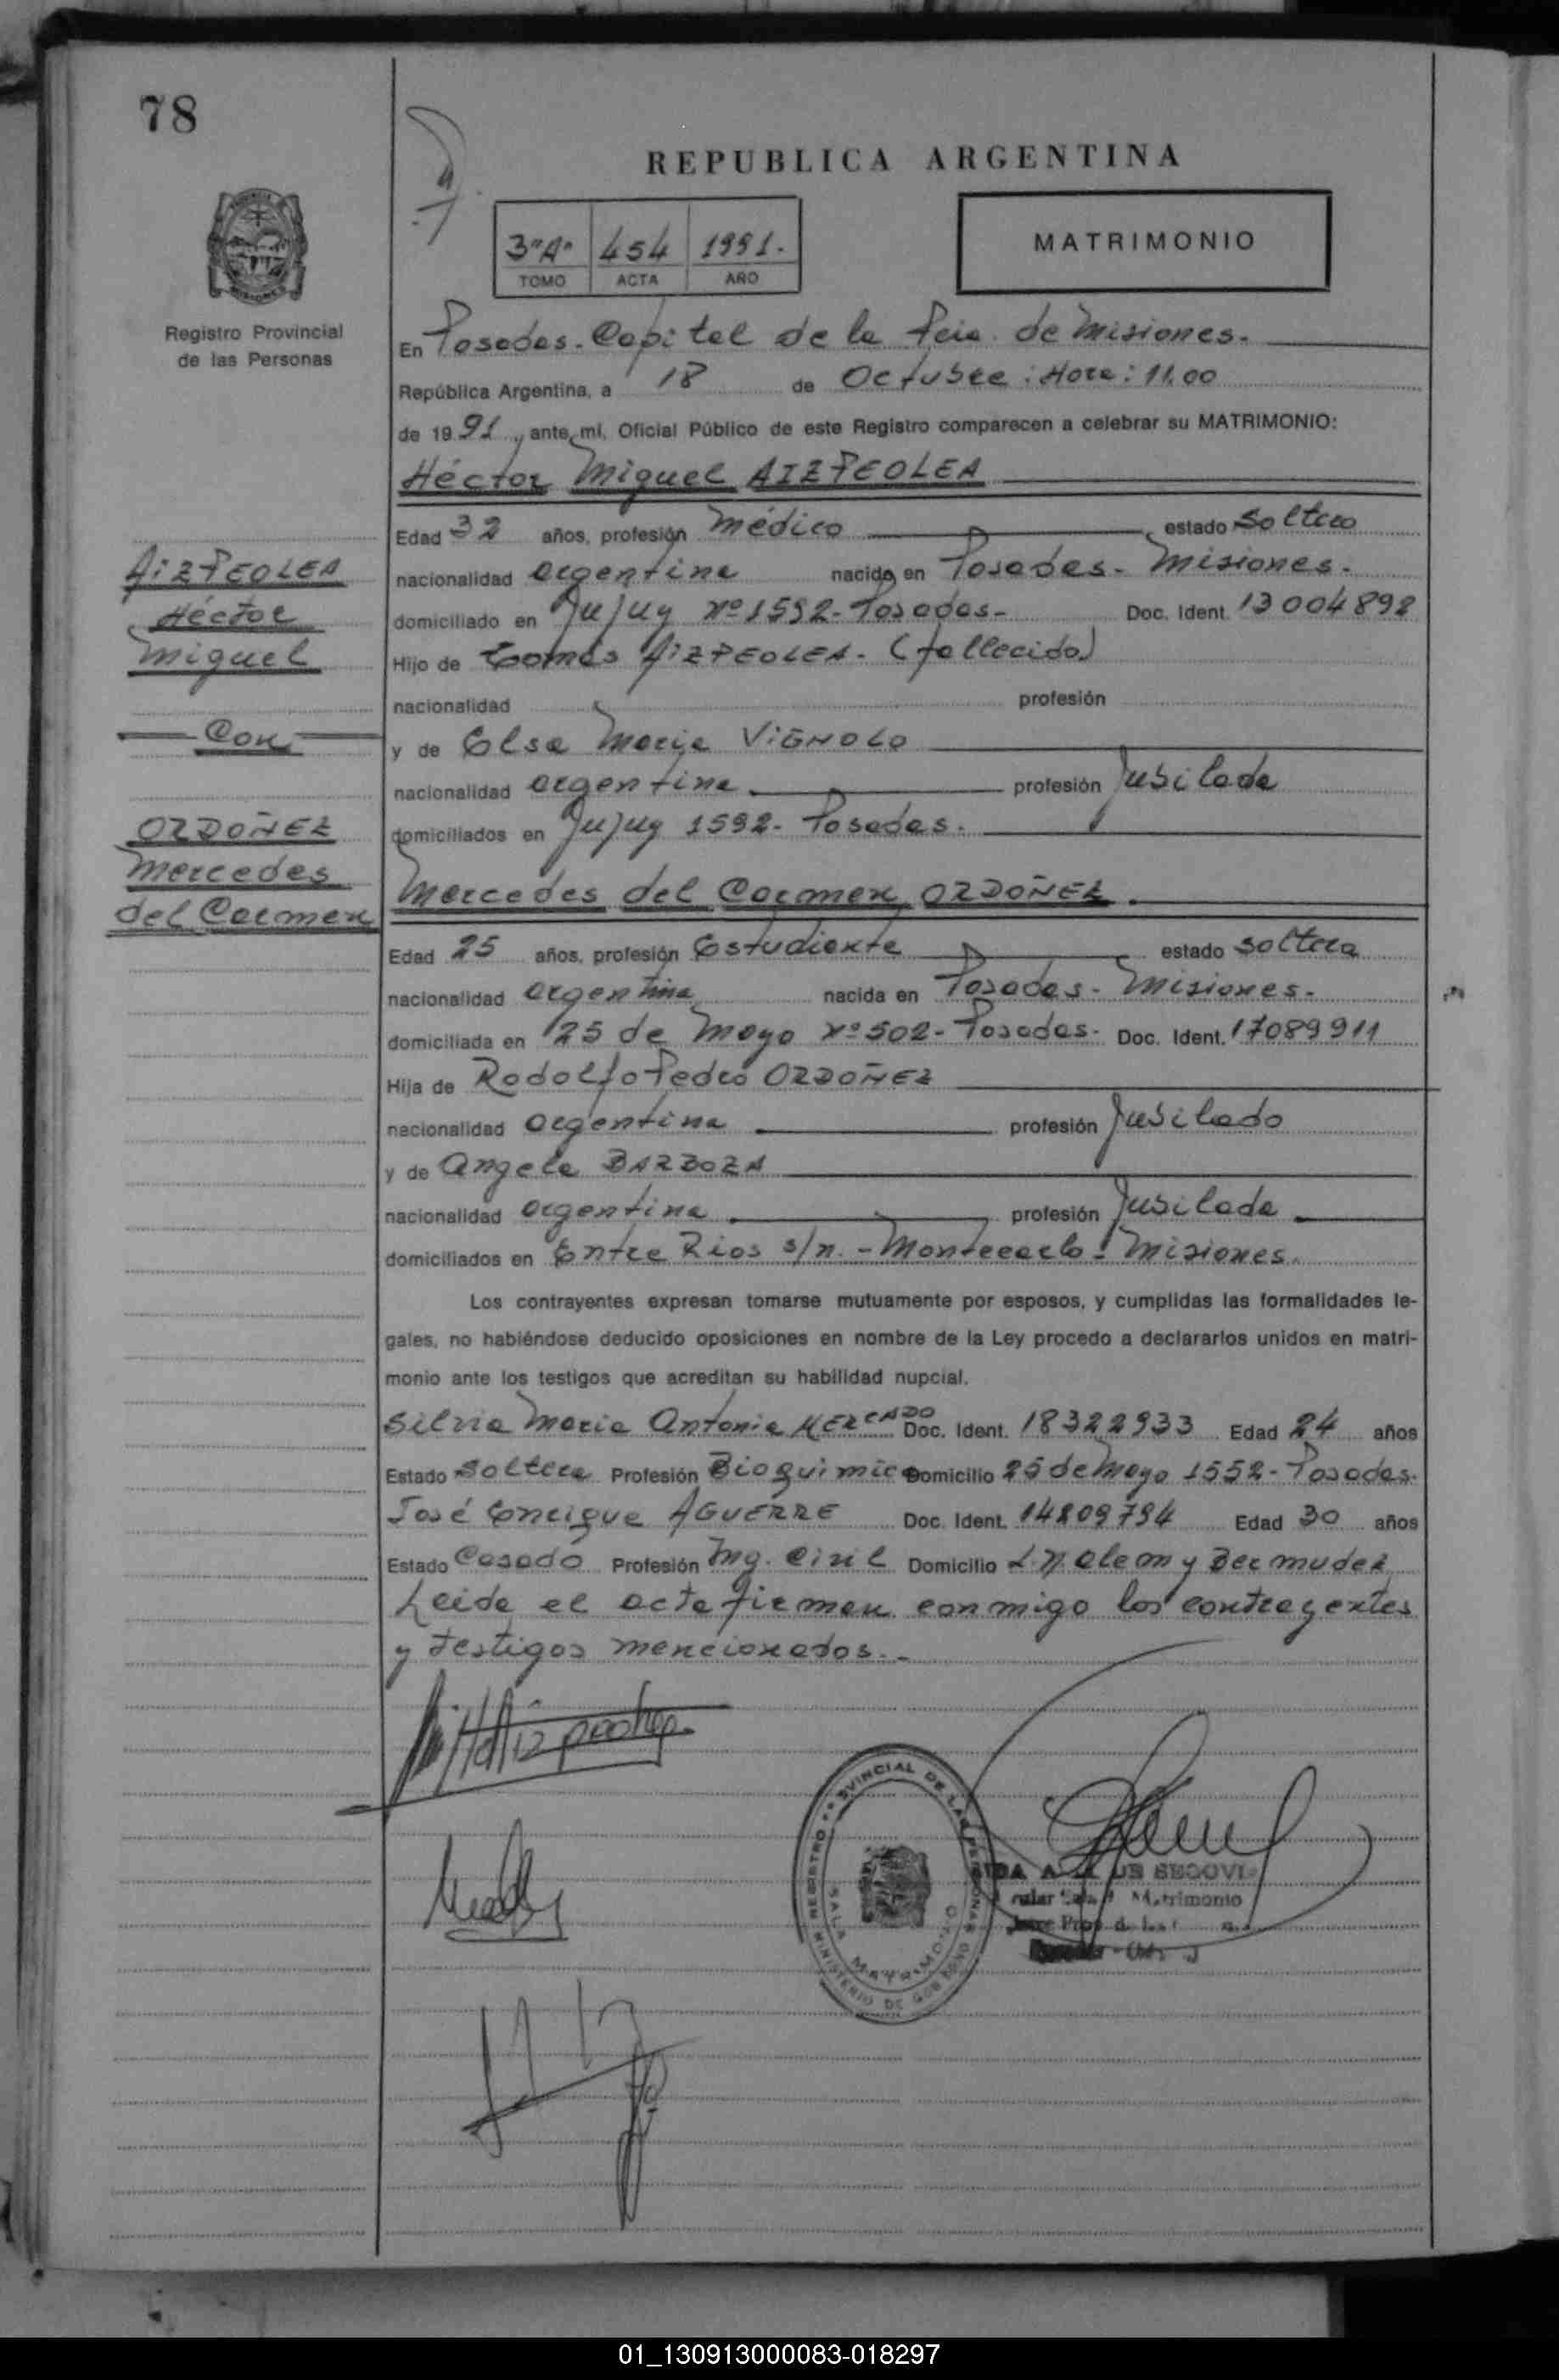 78
REPUBLICA ARGENTINA
3"A" 454 1991.-
TOMO ACTA AÑO
MATRIMONIO
Registro Provincial
de las Personas
En Posadas - Capital de la Pcia. de Misiones.-
República Argentina, a 18 de Octubre : Hora: 11.00
de 1991, ante mí, Oficial Público de este Registro comparecen a celebrar su MATRIMONIO:
Héctor Miguel AIZPEOLEA
Edad 32 años, profesión Médico estado Soltero
AIZPEOLEA
nacionalidad argentina nacido en Posadas - Misiones.-
Héctor
domiciliado en Jujuy Nº 1592 - Posadas - Doc. Ident. 13004892
Miguel
Hijo de Tomás AIZPEOLEA - (fallecido)
nacionalidad profesión
Con
y de Elsa María VIGNOLO
nacionalidad argentina profesión Jubilada
ORDOÑEZ
domiciliados en Jujuy 1592 - Posadas.-
Mercedes
del Carmen
Mercedes del Carmen ORDOÑEZ.
Edad 25 años, profesión Estudiante estado soltera
nacionalidad argentina nacida en Posadas - Misiones.-
domiciliada en 25 de Mayo Nº 502 - Posadas - Doc. Ident. 17089911
Hija de Rodolfo Pedro ORDOÑEZ
nacionalidad argentina profesión Jubilado
y de Angela BARBOZA
nacionalidad argentina profesión Jubilada
domiciliados en Entre Rios s/n. - Montecarlo - Misiones.
Los contrayentes expresan tomarse mutuamente por esposos, y cumplidas las formalidades le-
gales, no habiéndose deducido oposiciones en nombre de la Ley procedo a declararlos unidos en matri-
monio ante los testigos que acreditan su habilidad nupcial.
Silvia María Antonia MERCADO Doc. Ident. 18322933 Edad 24 años
Estado Soltera Profesión Bioquimica Domicilio 25 de Mayo 1552 - Posadas.
José Enrique AGUERRE Doc. Ident. 14809794 Edad 30 años
Estado Casado Profesión Ing. Civil Domicilio L.N. Alem y Bermudez
Leida el acta firman conmigo los contrayentes
y testigos mencionados.-
REGISTRO PROVINCIAL DE LAS PERSONAS
SALA MATRIMONIO
MINISTERIO DE GOBIERNO
DE SEGOVIA
Matrimonio
01_130913000083-018297